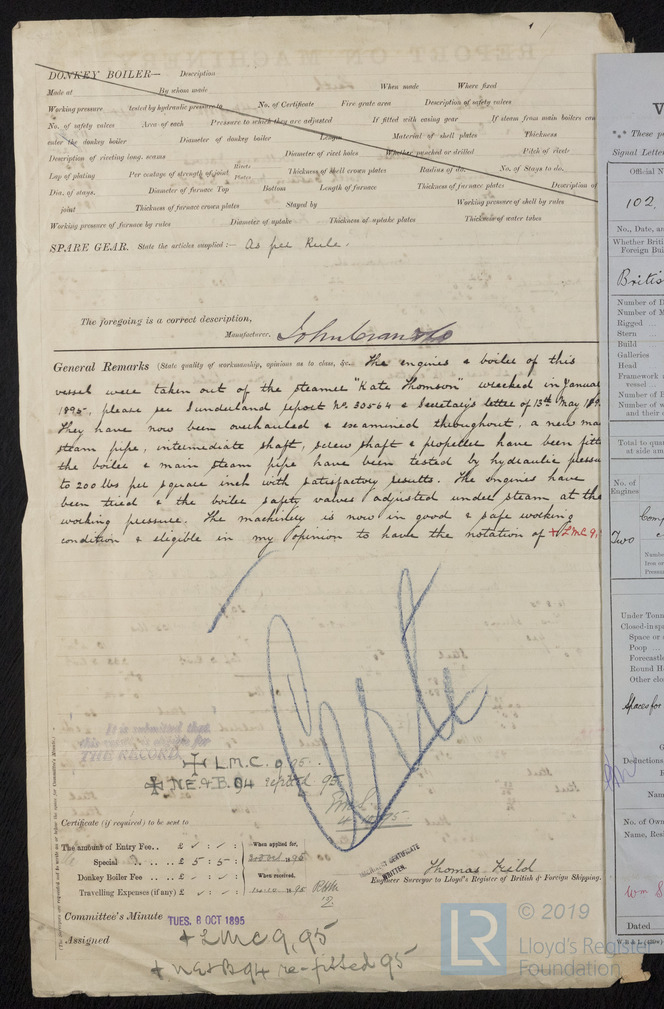 DONKEY BOILER— Description
Made at By whom made When made Where fixed
Working pressure tested by hydraulic pressure to No. of Certificate Fire grate area Description of safety valves
No. of safety valves Area of each Pressure to which they are adjusted If fitted with easing gear If steam from main boilers can
enter the donkey boiler Diameter of donkey boiler Length Material of shell plates Thickness
Description of riveting long. seams Diameter of rivet holes Whether punched or drilled Pitch of rivets
Lap of plating Per centage of strength of joint Rivets Plates Thickness of shell crown plates Radius of do. No. of Stays to do.
Dia. of stays. Diameter of furnace Top Bottom Length of furnace Thickness of furnace plates Description of
joint Thickness of furnace crown plates Stayed by Working pressure of shell by rules
Working pressure of furnace by rules Diameter of uptake Thickness of uptake plates Thickness of water tubes
SPARE GEAR. State the articles supplied:— As per Rule.
The foregoing is a correct description,
Manufacturer.
General Remarks (State quality of workmanship, opinions as to class, &c. The engines & boiler of this
vessel were taken out of the steamer "Kate Thomson" wrecked in Januar
1895, please see Sunderland report No. 30564 & Secretary's letter of 13th May 189
They have now been overhauled & examined throughout, a new ma
steam pipe, intermediate shaft, screw shaft & propeller have been fitt
the boiler & main steam pipe have been tested by hydraulic pressu
to 200 lbs per square inch with satisfactory results. The engines have
been tried & the boiler safty valves adjusted under steam at the
working pressure. The machinery is now in good & safe working
condition & eligible in my opinion to have the notation of + LMC 9,
It is submitted that
this vessel is eligible for
THE RECORD.
+ L.M.C. 9,95.
+ N.E.&B. 94 refitted 95
Certificate (if required) to be sent to
The amount of Entry Fee.. £ : : When applied for,
Special .. £ 5 : 5 :
Donkey Boiler Fee £ : : When received,
Travelling Expenses (if any) £ : :
CERTIFICATE
WRITTEN.
Thomas Field
Engineer Surveyor to Lloyd's Register of British & Foreign Shipping.
Committee's Minute TUES. 8 OCT 1895
Assigned + LMC 9,95
+ NE&B 94 re-fitted 95
© 2019
Lloyd's Register
Foundation
LR
V
These pa
Signal Letter
Official N
102,
No., Date, an
Whether Briti
Foreign Bui
Britis
Number of D
Number of M
Rigged
Stern
Build
Galleries
Head
Framework a
vessel
Number of B
Number of w
and their
Total to qua
at side am
No. of
Engines
Two
Comp
Under Tonn
Closed-in spa
Space or
Poop
Forecastl
Round H
Other clo
Spaces for
Deductions
Nam
No. of Own
Name, Resi
Wm S
Dated